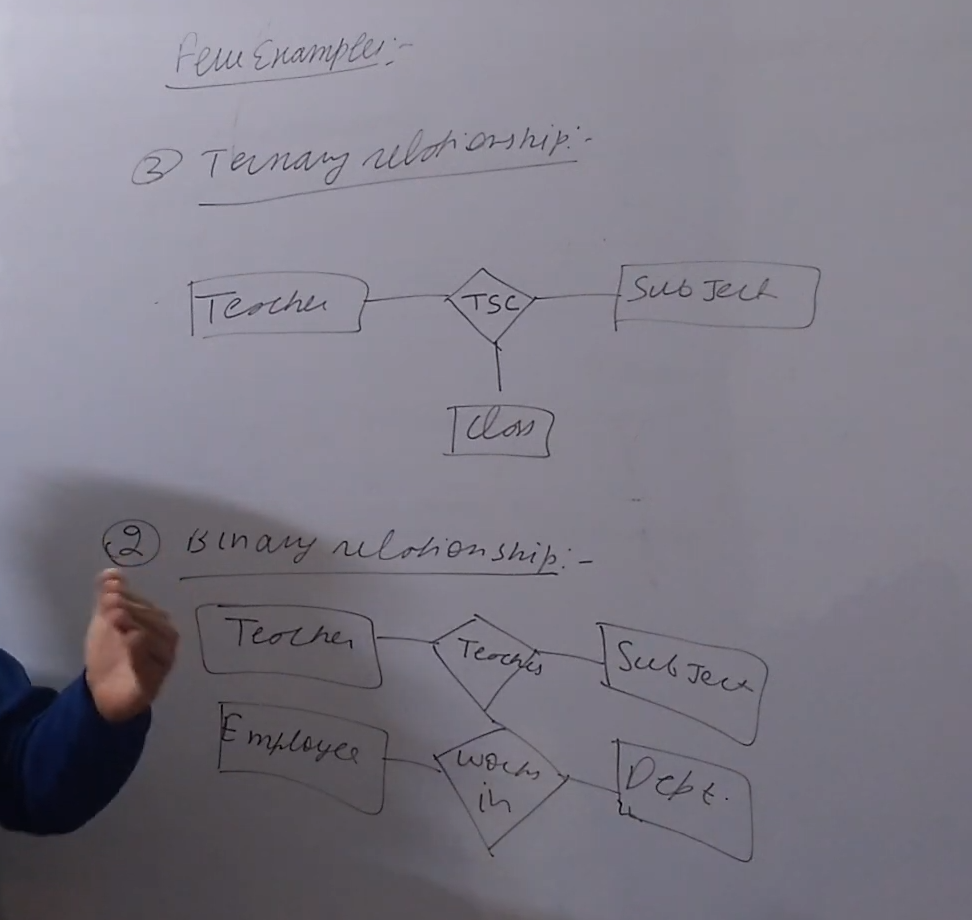 Few Examples:-
③ Ternary relationship:-
Teacher TSC Subject
Class
② Binary relationship:-
Teacher Teaches Subject
Employee works in Dept.